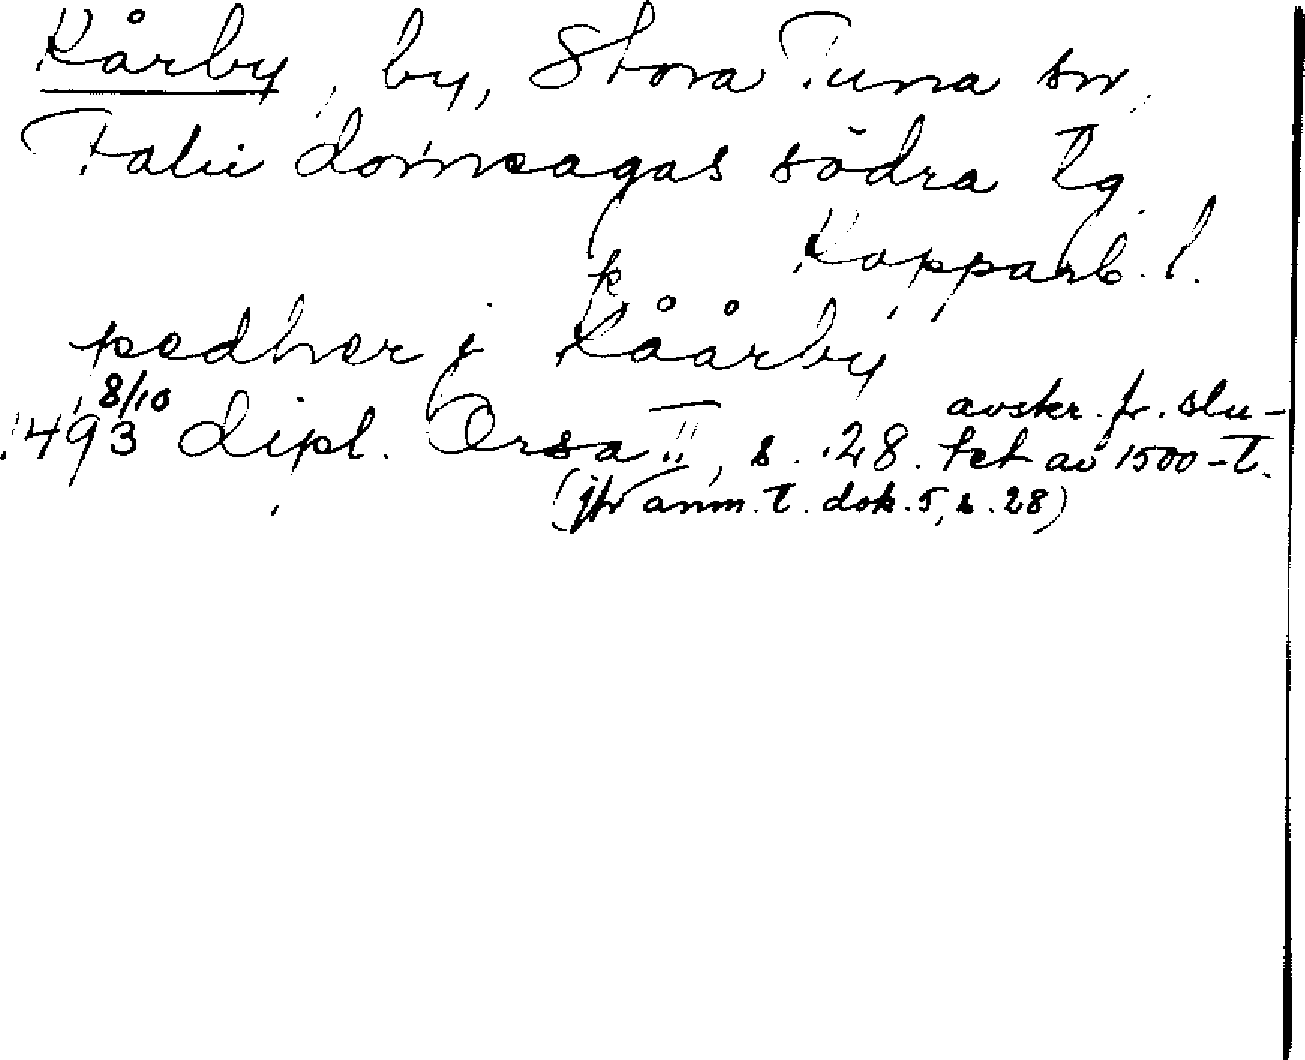 Kårby, by, Stora Tuna sn,
Falu domsagas södra tg
Kopparb. l.
k
pedher j Kåårby
1493 8/10 Dipl. Orsa II, s. 28. avskr. fr. slu-
tet av 1500-t.
(jfr anm. t. dok. 5, s. 28)